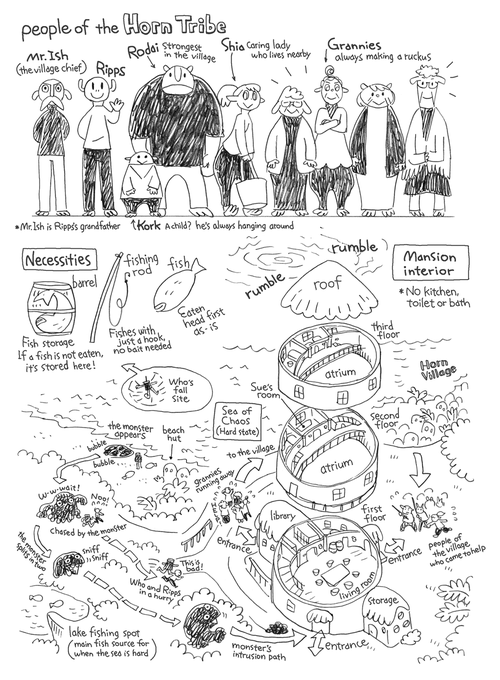 people of the Horn Tribe
Mr. Ish
(the village chief)
Ripps
Rodai Strongest
in the village
Shia Caring lady
who lives nearby
Grannies
always making a ruckus
*Mr. Ish is Ripps's grandfather
↑Kork A child? he's always hanging around
Necessities
barrel
Fish storage
If a fish is not eaten,
it's stored here!
fishing
rod
Fishes with
just a hook,
no bait needed
fish
Eaten
head first
as-is
rumble
rumble
roof
Mansion
interior
*No kitchen,
toilet or bath
third
floor
atrium
Sue's
room
Horn
Village
Who's
fall
site
Sea of
Chaos
(Hard state)
second
floor
atrium
the monster
appears
beach
hut
bubble
bubble
to the village
grannies
running away
W-w-wait!
Noo!
chased by the monster
library
first
floor
entrance
entrance
people of
the village
who came to help
the monster
splits in two
sniff
sniff
This is
bad!
Who and Ripps
in a hurry
living room
storage
lake fishing spot
(main fish source for
when the sea is hard)
monster's
intrusion path
entrance